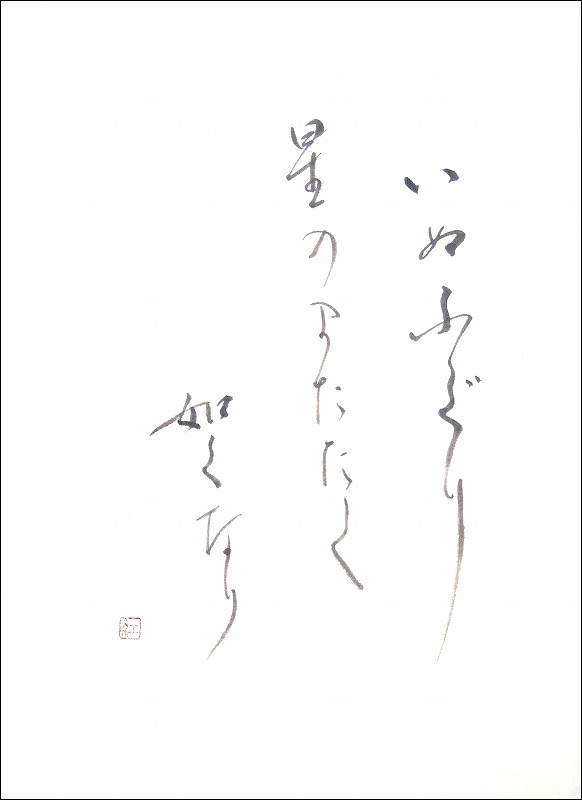 いぬふぐり
星のまたたく
如くなり